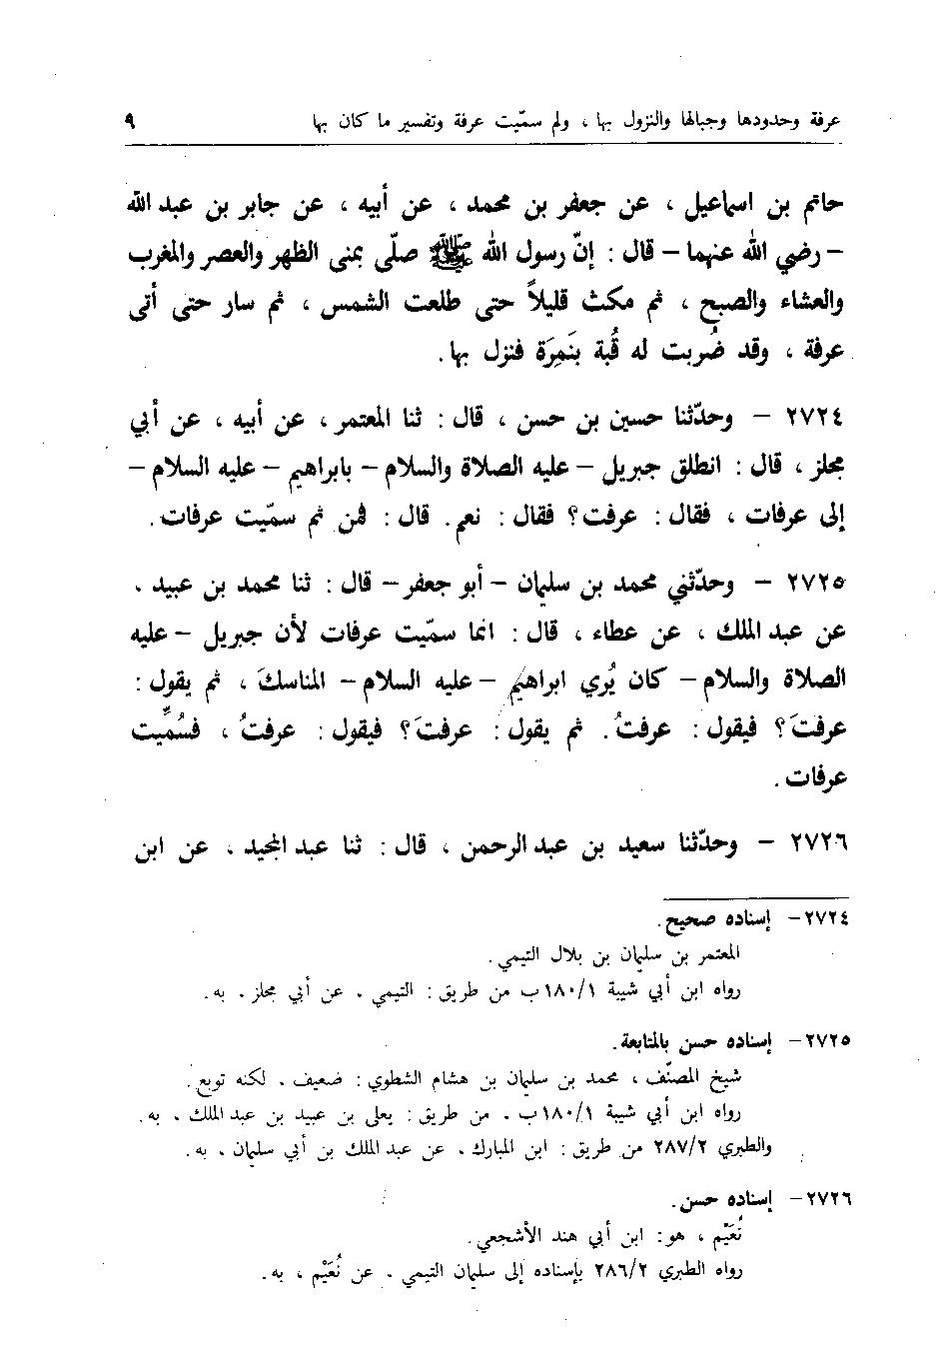 عرفة وحدودها وجبالها والنزول بها ، ولم سمّيت عرفة وتفسير ما كان بها ٩
حاتم بن اسماعيل ، عن جعفر بن محمد ، عن أبيه ، عن جابر بن عبد الله
– رضي الله عنهما – قال : إنّ رسول الله ﷺ صلّى بمنى الظهر والعصر والمغرب
والعشاء والصبح ، ثم مكث قليلاً حتى طلعت الشمس ، ثم سار حتى أتى
عرفة ، وقد ضُربت له قُبة بنَمِرَة فنزل بها .
٢٧٢٤ – وحدّثنا حسين بن حسن ، قال : ثنا المعتمر ، عن أبيه ، عن أبي
مجلز ، قال : انطلق جبريل – عليه الصلاة والسلام – بابراهيم – عليه السلام –
إلى عرفات ، فقال : عرفت ؟ فقال : نعم . قال : فمن ثم سمّيت عرفات .
٢٧٢٥ – وحدّثني محمد بن سليمان – أبو جعفر – قال : ثنا محمد بن عبيد ،
عن عبد الملك ، عن عطاء ، قال : انما سمّيت عرفات لأن جبريل – عليه
الصلاة والسلام – كان يُري ابراهيم – عليه السلام – المناسكَ ، ثم يقول :
عرفتَ ؟ فيقول : عرفتُ . ثم يقول : عرفتَ ؟ فيقول : عرفتُ ، فسُمِّيت
عرفات .
٢٧٢٦ – وحدّثنا سعيد بن عبد الرحمن ، قال : ثنا عبد المجيد ، عن ابن
٢٧٢٤ – إسناده صحيح .
المعتمر بن سليمان بن بلال التيمي .
رواه ابن أبي شيبة ١٨٠/١ب من طريق : التيمي ، عن أبي مجلز ، به .
٢٧٢٥ – إسناده حسن بالمتابعة .
شيخ المصنّف ، محمد بن سليمان بن هشام الشطوي : ضعيف ، لكنه توبع .
رواه ابن أبي شيبة ١٨٠/١ب ، من طريق : يعلى بن عبيد بن عبد الملك ، به .
والطبري ٢٨٧/٢ من طريق : ابن المبارك ، عن عبد الملك بن أبي سليمان ، به .
٢٧٢٦ – إسناده حسن .
نُعَيْم ، هو : ابن أبي هند الأشجعي .
رواه الطبري ٢٨٦/٢ بإسناده إلى سليمان التيمي ، عن نُعَيْم ، به .